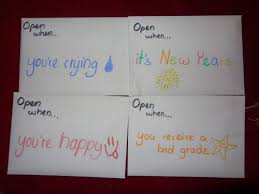 Open
when...
you're crying
Open
when...
it's New Years
Open
when...
you're happy
Open
when...
you receive a
bad grade